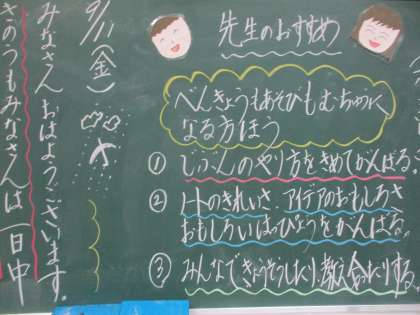 先生のおすすめ
べんきょうもあそびもむちゅうに
なる方ほう
① じぶんのやり方をきめてがんばる。
② ノートのきれいさ、アイデアのおもしろさ
おもしろいはっぴょうをがんばる。
③ みんなできょうそうしたり、教え合ったりする。
9/11(金)
みなさんおはようございます。
きのうもみなさんは一日中